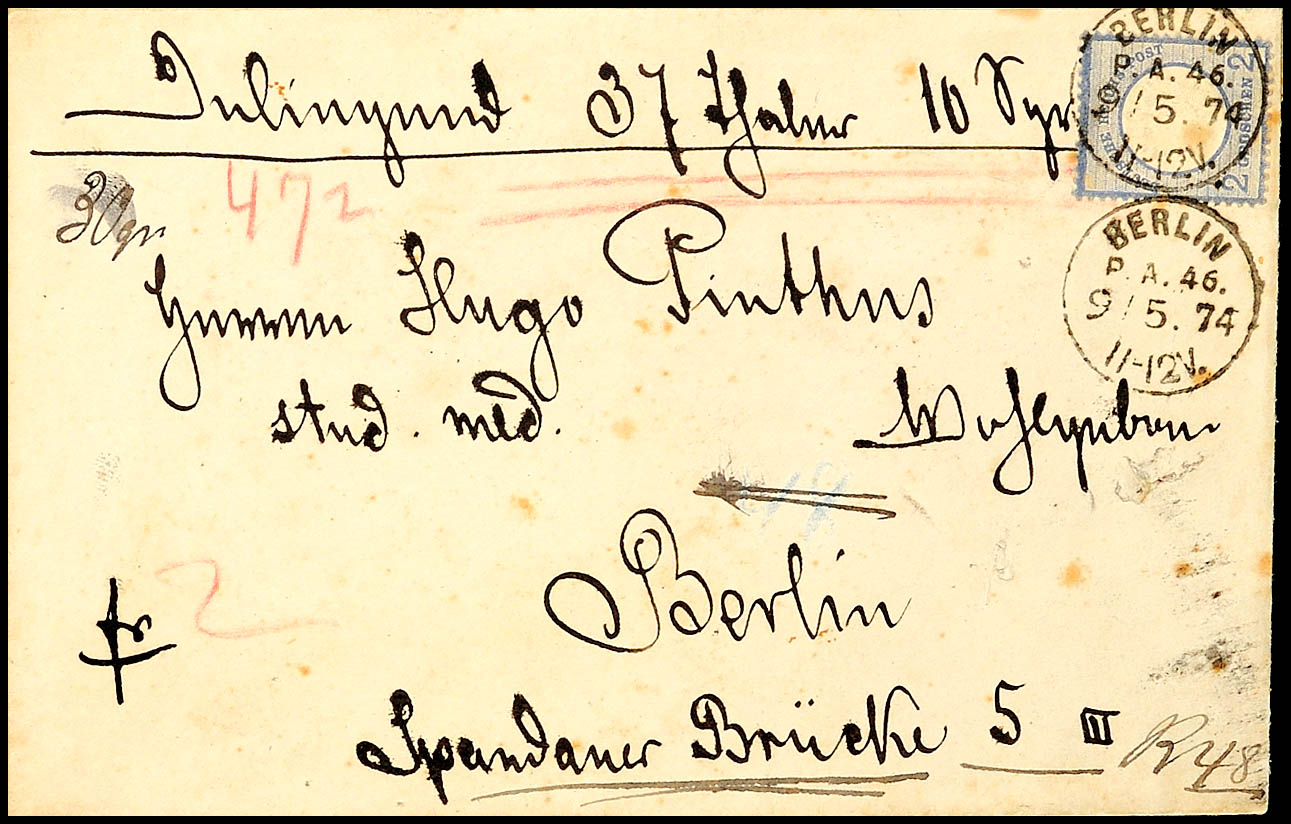 Inliegend 37 Thaler 10 Sgr
472
Herren Hugo Pinthus
stud. med.
Wohlgeboren
Berlin
fr
2
Spandauer Brücke 5 III
R 48
BERLIN
P. A. 46.
9/5.74
11-12V.
BERLIN
P. A. 46.
9/5.74
11-12V.